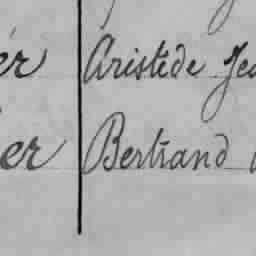 er Aristide Jea
er Bertrand